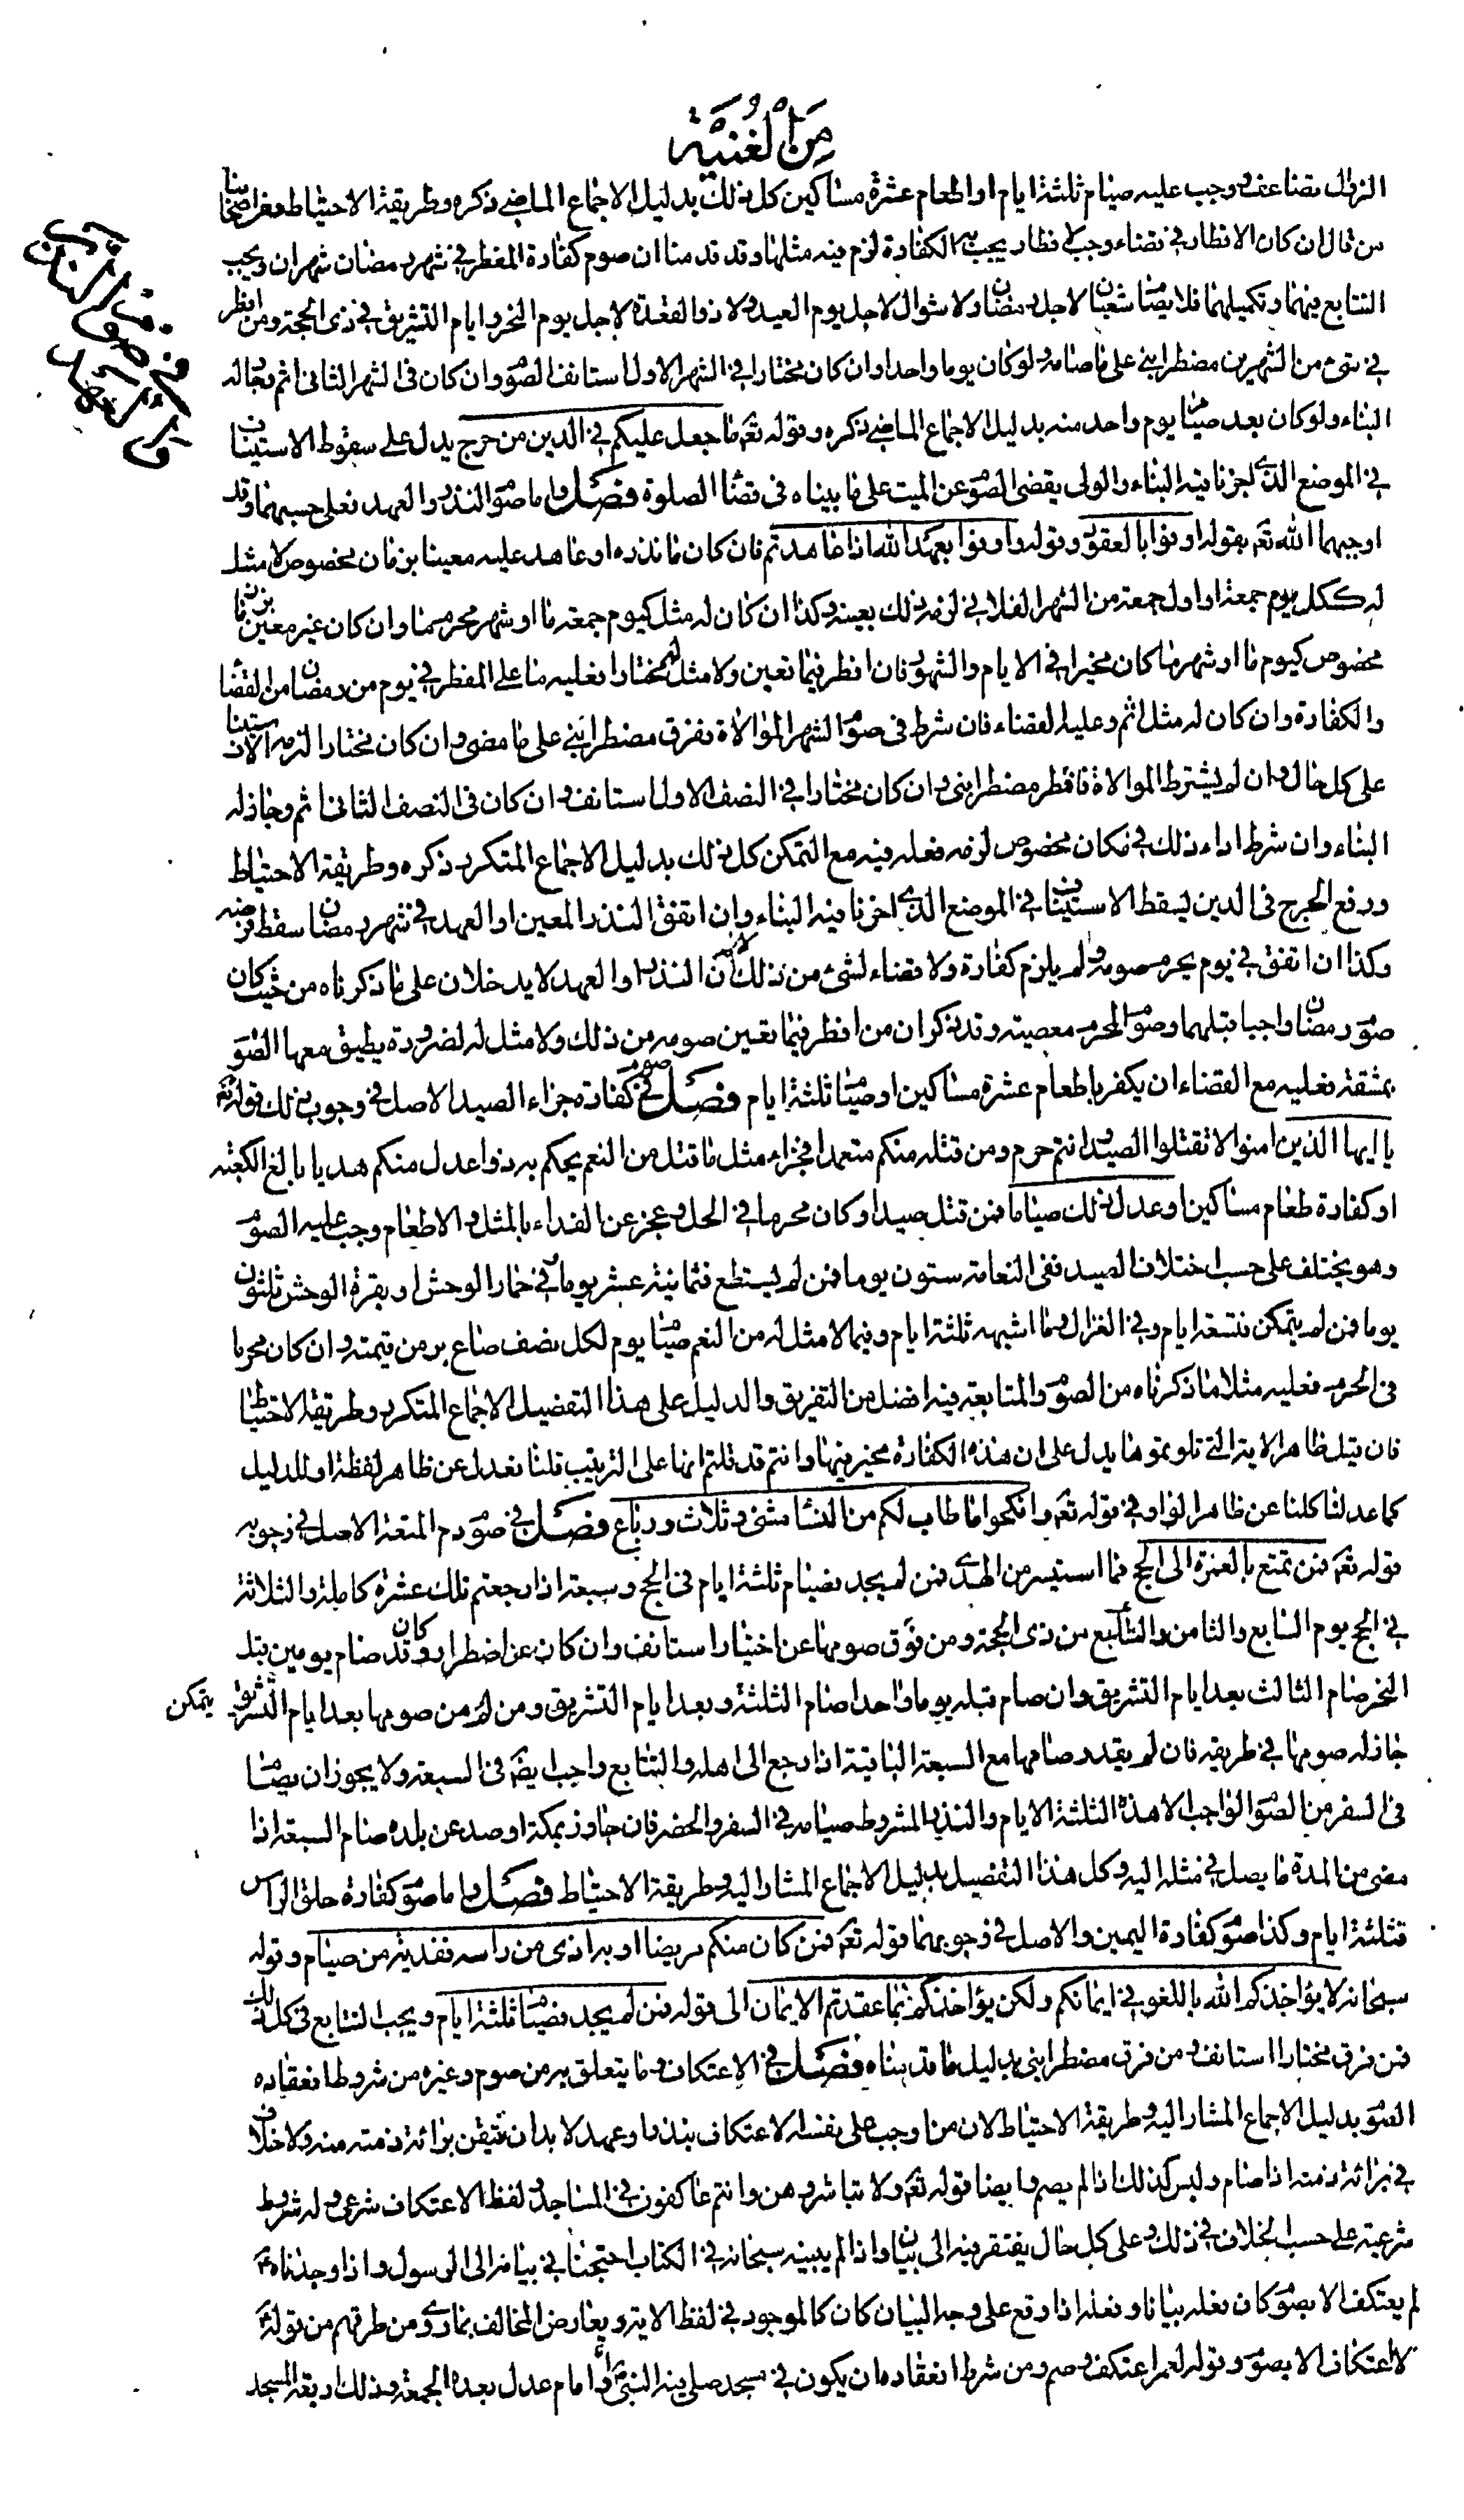 مِنَ الْغُنيَة
الزوال تضاعف وجب عليه صيام ثلثة ايام او اطعام عشرة مساكين كل ذلك بدليل الاجماع الماضي ذكره وطريقة الاحتياط ومن اصحابنا
من قال ان كان الافطار في قضاء وجب لافطار يجب به الكفارة لزم فيه مثلها وقد قدمنا ان صوم كفارة المفطر في شهر رمضان شهران ويجب
التتابع فيهما وتكميلهما فلا يصام شعبان لاجل رمضان ولا شوال لاجل يوم العيد ولا ذو القعدة لاجل يوم النحر وايام التشريق في ذي الحجة ومن افطر
في شئ من الشهرين مضطرا بنى على ما صامه ولو كان يوما واحدا وان كان مختارا في الشهر الاول استانف الصوم وان كان في الشهر الثاني اثم وجاز له
البناء ولو كان بعد صيام يوم واحد منه بدليل الاجماع الماضي ذكره وقوله تعالى ما جعل عليكم في الدين من حرج يدل على سقوط الاستيناف
في الموضع الذي اجزنا فيه البناء والولي يقضى الصوم عن الميت على ما بيناه في قضاء الصلوة فصل واما صوم النذر والعهد فعلى حسبهما وقد
اوجبهما الله تع بقوله اوفوا بالعقود وقوله واوفوا بعهد الله اذا عاهدتم فان كان ما نذره او عاهد عليه معينا بزمان مخصوص لا مثل
له ككل يوم جمعة او اول جمعة من الشهر الفلاني لزمه ذلك بعينه وكذا ان كان له مثل كيوم جمعة ما او شهر محرم ما وان كان غير معين بزمان
مخصوص كيوم ما او شهر ما كان مخيرا في الايام والشهور فان افطر فيما تعين ولا مثل له مختارا فعليه ما على المفطر في يوم من رمضان من القضاء
والكفارة وان كان له مثل اثم وعليه القضاء فان شرط في صوم الشهر الموالاة ففرق مضطرا بنى على ما مضى وان كان مختارا لزمه الاستيناف
على كل حال وان لم يشترط الموالاة فافطر مضطرا بنى وان كان مختارا في النصف الاول استانف وان كان في النصف الثاني اثم وجاز له
البناء وان شرط اداء ذلك في مكان مخصوص لزمه فعله فيه مع التمكن كل ذلك بدليل الاجماع المتكرر ذكره وطريقة الاحتياط
ورفع الحرج في الدين يسقط الاستيناف في الموضع الذي اخرنا فيه البناء وان اتفق النذر المعين او العهد في شهر رمضان سقط فرضه
وكذا ان اتفق في يوم يحرم صومه ولم يلزم كفارة ولا قضاء لشئ من ذلك لان النذر او العهد لا يدخلان على ما ذكرناه من حيث كان
صوم رمضان واجبا قبلهما وصوم المحرم معصية وقد ذكر ان من افطر فيما تعين صومه من ذلك ولا مثل له لضرورة يطيق معها الصوم
بمشقة فعليه مع القضاء ان يكفر باطعام عشرة مساكين او صيام ثلثة ايام فصل في صوم كفارة جزاء الصيد الاصل في وجوب ذلك قوله تع
يا ايها الذين امنوا لا تقتلوا الصيد وانتم حرم ومن قتله منكم متعمدا فجزاء مثل ما قتل من النعم يحكم به ذوا عدل منكم هديا بالغ الكعبة
او كفارة طعام مساكين او عدل ذلك صياما فمن قتل صيدا وكان محرما في الحل وعجز عن الفداء بالمثل والاطعام وجب عليه الصوم
وهو يختلف على حسب اختلاف الصيد ففى النعامة ستون يوما فمن لم يستطع فثمانية عشر يوما وفي حمار الوحش او بقرة الوحش ثلثون
يوما فمن لم يتمكن فتسعة ايام وفي الغزال وما اشبهه ثلثة ايام وفيما لا مثل له من النعم صيام يوم لكل نصف صاع بر من قيمته وان كان محرما
في الحرم فعليه مثلا ما ذكرناه من الصوم والمتابعة فيه افضل من التفريق والدليل على هذا التفصيل الاجماع المتكرر وطريقة الاحتياط
فان قيل ظاهر الاية التي تلوتموها يدل على ان هذه الكفارة مخير فيها وانتم قد قلتم انها على الترتيب قلنا نعدل عن ظاهر لفظة او للدليل
كما عدلنا كلنا عن ظاهر الواو في قوله تع وانكحوا ما طاب لكم من النساء مثنى وثلاث ورباع فصل في صوم دم المتعة الاصل في وجوبه
قوله تع فمن تمتع بالعمرة الى الحج فما استيسر من الهدي فمن لم يجد فصيام ثلثة ايام في الحج وسبعة اذا رجعتم تلك عشرة كاملة والثلاثة
في الحج يوم السابع والثامن والتاسع من ذي الحجة ومن فرق صومها عن اختيار استانف وان كان عن اضطرار وكان قد صام يومين قبل
النحر صام الثالث بعد ايام التشريق وان صام قبله يوما واحدا صام الثلثة وبعد ايام التشريق ومن لم من صومها بعد ايام التشريق يتمكن
جاز له صومها في طريقه فان لم يقدر صامها مع السبعة الباقية اذا رجع الى اهله والتتابع واجب ايضا في السبعة ولا يجوز ان يصام
في السفر من الصوم الواجب الا هذه الثلثة الايام والنذر المشروط صيامه في السفر والحضر فان جاوز بمكة او صد عن بلده صام السبعة اذا
مضى من المدة ما يصل في مثله اليه وكل هذا التفصيل بدليل الاجماع المشار اليه وطريقة الاحتياط فصل واما صوم كفارة حلق الراس
فثلثة ايام وكذا صوم كفارة اليمين والاصل في وجوبهما قوله تع فمن كان منكم مريضا او به اذى من راسه ففدية من صيام وقوله
سبحانه لا يؤاخذكم الله باللغو في ايمانكم ولكن يؤاخذكم بما عقدتم الايمان الى قوله فمن لم يجد فصيام ثلثة ايام ويجب التتابع في كل ذلك
فمن فرق مختارا استانف ومن فرق مضطرا بنى بدليل ما قدمناه فصل في الاعتكاف وما يتعلق به من صوم وغيره من شروط انعقاده
الصوم بدليل الاجماع المشار اليه وطريقة الاحتياط لان من اوجب على نفسه الاعتكاف بنذر او عهد لا بد ان يتيقن برائة ذمته منه ولا خلاف
في برائة ذمته اذا صام وليس كذلك اذا لم يصم وايضا قوله تع ولا تباشروهن وانتم عاكفون في المساجد ولفظ الاعتكاف شرعي وله شروط
شرعية على حسب الخلاف في ذلك وعلى كل حال يفتقر فيه الى بيان واذا لم يبينه سبحانه في الكتاب احتجنا في بيانه الى الرسول واذا وجدناه ع
لم يعتكف الا بصوم كان فعله بيانا وفعله اذا وقع على وجه البيان كان كالموجود في لفظ الاية ويعارض المخالف بما روي من طرقهم من قوله ع
لا اعتكاف الا بصوم وقوله لعمر اعتكف وصم ومن شرط انعقاده ان يكون في مسجد صلى فيه النبي ص او امام عدل بعده الجمعة وذلك اربعة المسجد